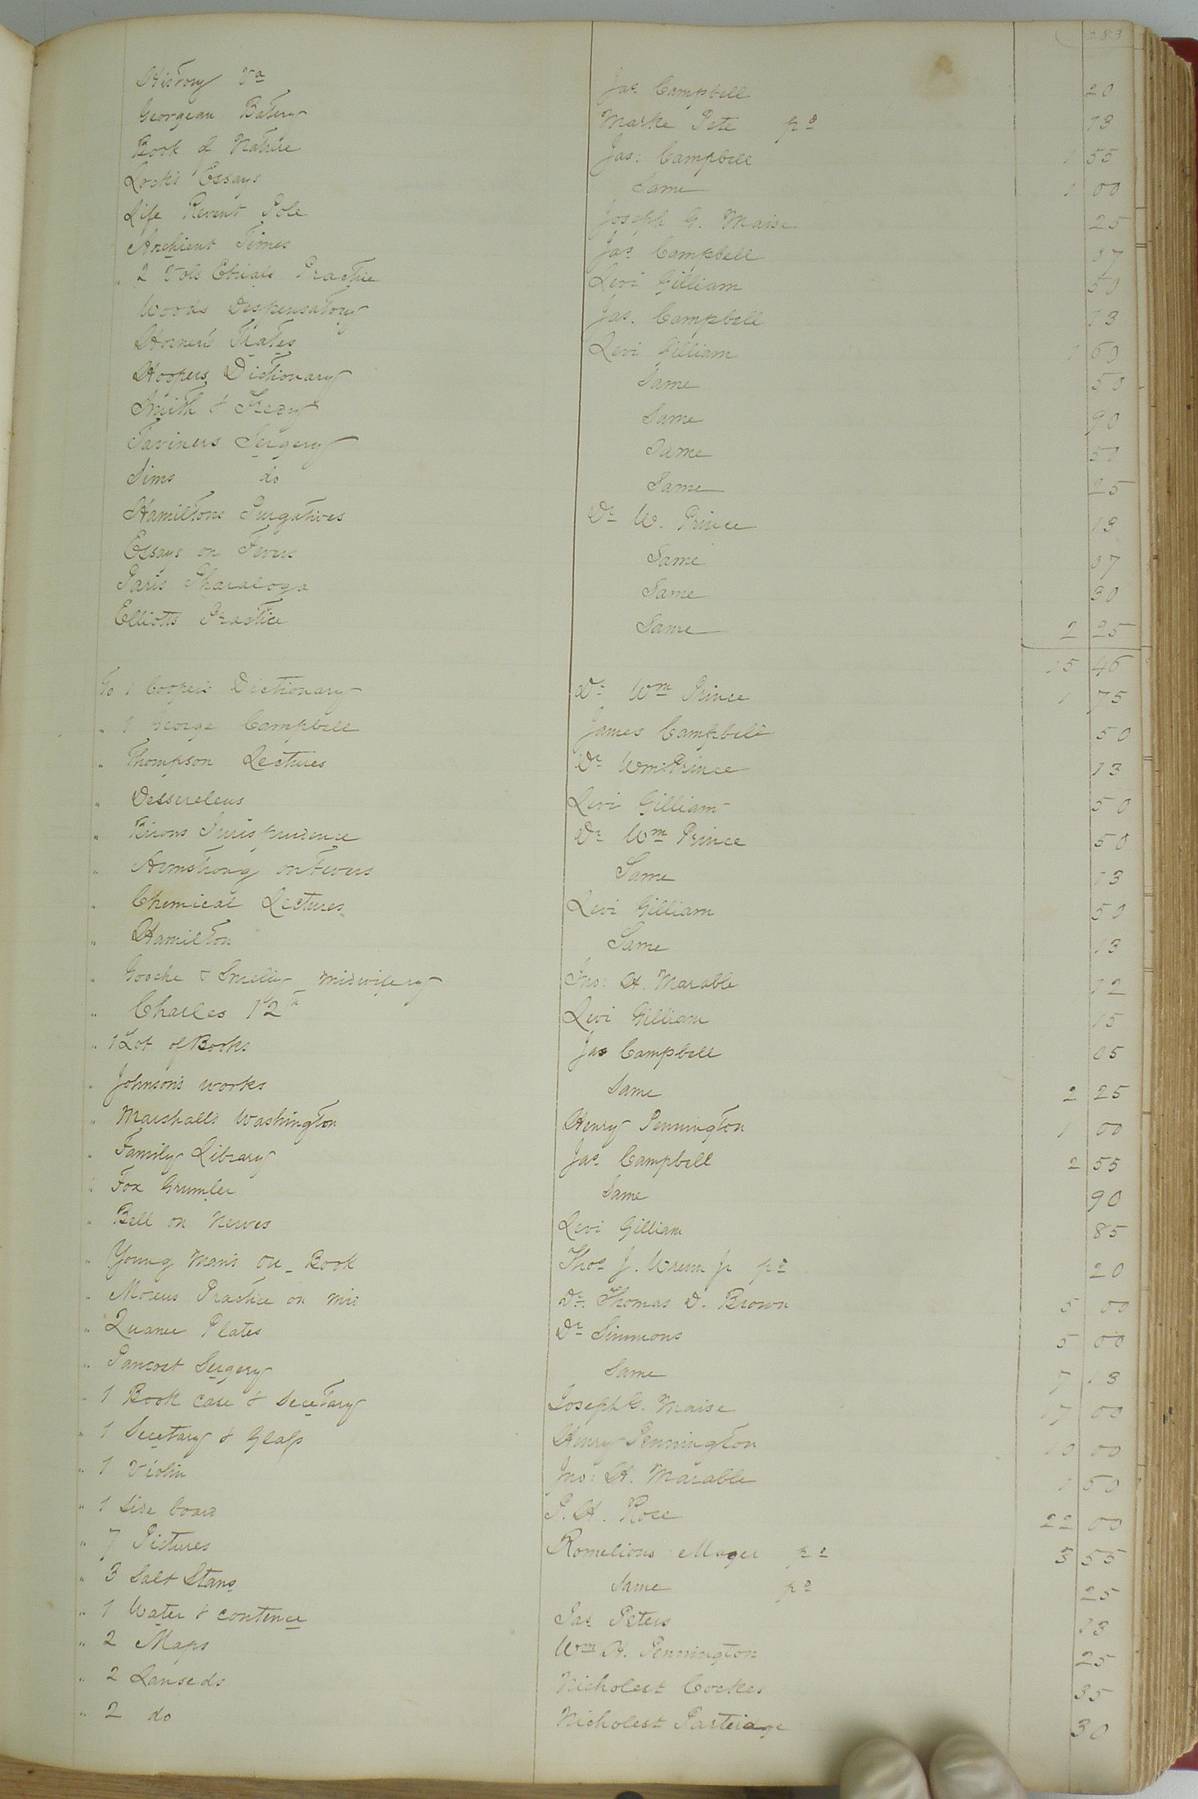 283
History Va Jas Campbell 20
Georgean Marke Pete pd 13
Book of Nature Jas: Campbell 1 55
Lock's Essays Same 1 00
Life Revent Pole Joseph G. Maise 25
Anchient Times Jas Campbell 37
" 2 Vols Practice Levi Gilliam 50
Woods Dispensatory Jas. Campbell 13
Horner's Plates Levi Gilliam 1 60
Hoopers Dictionary Same 50
Smith & Same 90
Taviners Surgery Same 50
Sims do Same 25
Hamiltons Purgatives Dr W. Prince 13
Essays on Fevers Same 37
Paris Same 30
Elliotts Practice Same 2 25
15 46
To 1 Cooper's Dictionary Dr Wm Prince 1 75
" 1 George Campbell James Campbell 50
" Thompson Lectures Dr Wm Prince 13
" Dessereleus Levi Gilliam 50
" Jurisprudence Dr Wm Prince 50
" Armstrong on Fevers Same 13
" Chemical Lectures Levi Gilliam 50
" Hamilton Same 13
" Gooche & Smelley midwifery Jno: H. Marable 12
" Charles 12th Levi Gilliam 15
" 1 Lot of Books Jas Campbell 05
" Johnson's works Same 2 25
" Marshall's Washington Henry Pennington 1 00
" Family Library Jas Campbell 2 55
" Fox Grumler Same 90
" Bell on Nerves Levi Gilliam 85
" Young Man's Book Thos J. Wrenn jr pd 20
" Practice on Dr. Thomas D. Brown 5 00
" Plates Dr Simmons 5 00
" Pancost Surgery Same 7 13
" 1 Book case & Secetary Joseph G. Maise 17 00
" 1 Secetary & Glass Henry Pennington 10 00
" 1 Violin Jno: H. Marable 1 50
" 1 Side board P. H. Rose 22 00
" 7 Pictures Romelious pd 3 55
" 3 Salt Stans Same pd 25
" 1 Water & contence Jas Peters 13
" 2 Maps Wm H. Pennington 25
" 2 Nicholest Cockes 35
" 2 do Nicholest Parteidge 30